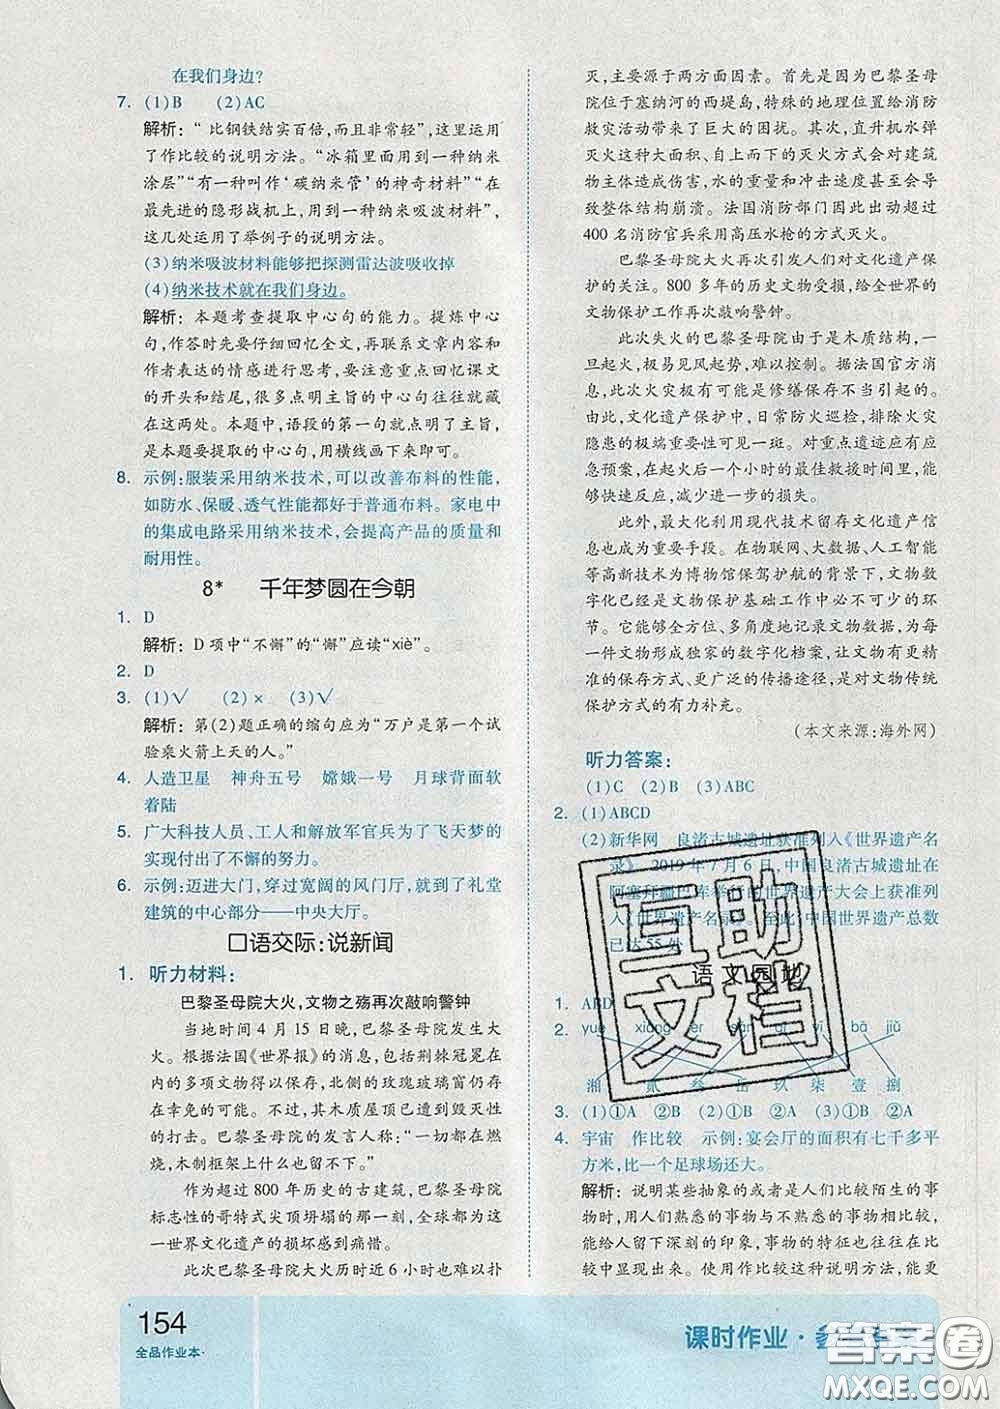 在我们身边?
7. (1)B (2)AC
解析:“比钢铁结实百倍,而且非常轻”,这里运用
了作比较的说明方法。“冰箱里面用到一种纳米
涂层”“有一种叫作‘碳纳米管’的神奇材料”“在
最先进的隐形战机上,用到一种纳米吸波材料”,
这几处运用了举例子的说明方法。
(3)纳米吸波材料能够把探测雷达波吸收掉
(4)纳米技术就在我们身边。
解析:本题考查提取中心句的能力。提炼中心
句,作答时先要仔细回忆全文,再联系文章内容和
作者表达的情感进行思考,要注意重点回忆课文
的开头和结尾,很多点明主旨的中心句往往就藏
在这两处。本题中,语段的第一句就点明了主旨,
是本题要提取的中心句,用横线画下来即可。
8. 示例:服装采用纳米技术,可以改善布料的性能,
如防水、保暖、透气性能都好于普通布料。家电中
的集成电路采用纳米技术,会提高产品的质量和
耐用性。
8* 千年梦圆在今朝
1. D
解析:D项中“不懈”的“懈”应读“xiè”。
2. D
3. (1)√ (2)× (3)√
解析:第(2)题正确的缩句应为“万户是第一个试
验乘火箭上天的人。”
4. 人造卫星 神舟五号 嫦娥一号 月球背面软
着陆
5. 广大科技人员、工人和解放军官兵为了飞天梦的
实现付出了不懈的努力。
6. 示例:迈进大门,穿过宽阔的风门厅,就到了礼堂
建筑的中心部分——中央大厅。
口语交际:说新闻
1. 听力材料:
巴黎圣母院大火,文物之殇再次敲响警钟
当地时间4月15日晚,巴黎圣母院发生大
火。根据法国《世界报》的消息,包括荆棘冠冕在
内的多项文物得以保存,北侧的玫瑰玻璃窗仍存
在幸免的可能。不过,其木质屋顶已受到毁灭性
的打击。巴黎圣母院的发言人称:“一切都在燃
烧,木制框架上什么也留不下。”
作为超过800年历史的古建筑,巴黎圣母院
标志性的哥特式尖顶坍塌的那一刻,全球都为这
一世界文化遗产的损坏感到痛惜。
此次巴黎圣母院大火历时近6小时也难以扑
灭,主要源于两方面因素。首先是巴黎圣母
院位于塞纳河的西堤岛,特殊的地理位置给消防
救灾活动带来了巨大的困扰。其次,直升机水弹
灭火这一超大范围、自上而下的灭火方式会对建筑
物主体造成伤害,水的重量和冲击速度甚至会导
致整体结构崩溃。法国消防部门因此出动超过
400名消防官兵采用高压水枪的方式灭火。
巴黎圣母院大火再次引发人们对文化遗产保
护的关注。800多年的历史文物受损,给全世界的
文物保护工作再次敲响警钟。
此次失火的巴黎圣母院由于是木质结构,一
旦起火,极易见风起势,难以控制。据法国官方消
息,此次火灾极有可能是修缮保存不当引起的。
由此,文化遗产保护中,日常防火巡检,排除火灾
隐患的极端重要性可见一斑。对重点遗迹应有应
急预案,在起火后一个小时的最佳救援时间里,能
够快速反应,减少进一步的损失。
此外,最大化利用现代技术留存文化遗产信
息也成为重要手段。在物联网、大数据、人工智能
等高新技术为博物馆保驾护航的背景下,文物数
字化已经是文物保护基础工作中必不可少的环
节。它能够全方位、多角度地记录文物数据,为每
一件文物形成独家的数字化档案,让文物有更精
准的保存方式、更广泛的传播途径,是对文物传统
保护方式的有力补充。
(本文来源:海外网)
听力答案:
(1)C (2)B (3)ABC
2. (1)ABCD
(2)新华网 良渚古城遗址获准列入《世界遗产名
录》 2019年7月6日,中国良渚古城遗址在
阿塞拜疆巴库举行的世界遗产大会上获准列
入《世界遗产名录》。至此,中国世界遗产总数
已达55处
语文园地
1. ABD
2. yuè xiāng èr sān qī yī bā jiǔ
湘 贰 叁 岳 玖 柒 壹 捌
3. (1)①A ②B (2)①B ②A (3)①B ②A
4. 宇宙 作比较 示例:宴会厅的面积有七千多平
方米,比一个足球场还大。
解析:说明某些抽象的或者是人们比较陌生的事
物时,用人们熟悉的事物与不熟悉的事物相比较,
能给人留下深刻的印象,事物的特征也往往在比
较中显现出来。使用作比较这种说明方法,能更
互助
文档
154
全品作业本·
课时作业·参
答案圈
MXQE.COM